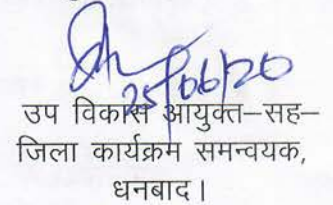 25/06/20
उप विकास आयुक्त–सह–
जिला कार्यक्रम समन्वयक,
धनबाद।